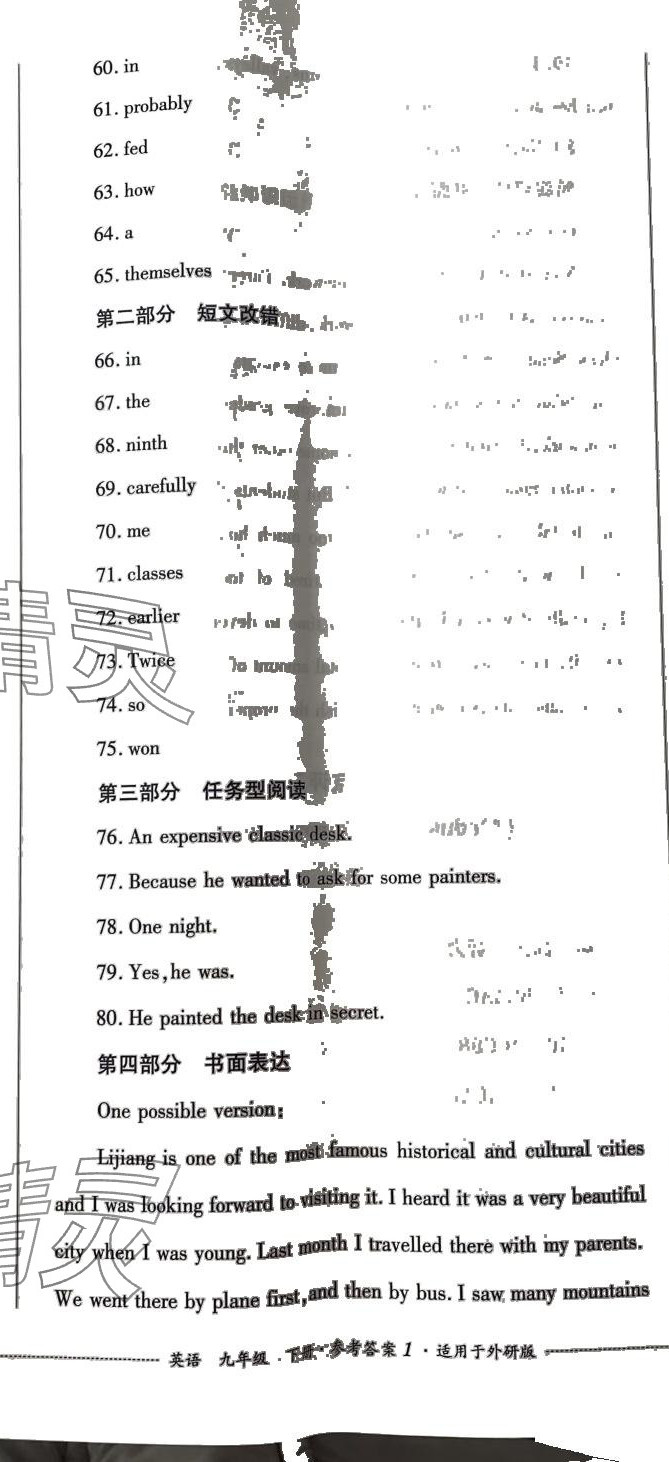 60. in
61. probably
62. fed
63. how
64. a
65. themselves
第二部分 短文改错
66. in
67. the
68. ninth
69. carefully
70. me
71. classes
72. earlier
73. Twice
74. so
75. won
第三部分 任务型阅读
76. An expensive classic desk.
77. Because he wanted to ask for some painters.
78. One night.
79. Yes, he was.
80. He painted the desk in secret.
第四部分 书面表达
One possible version:
Lijiang is one of the most famous historical and cultural cities
and I was looking forward to visiting it. I heard it was a very beautiful
city when I was young. Last month I travelled there with my parents.
We went there by plane first, and then by bus. I saw many mountains
英语 九年级·下册·参考答案 1·适用于外研版
精灵
精灵